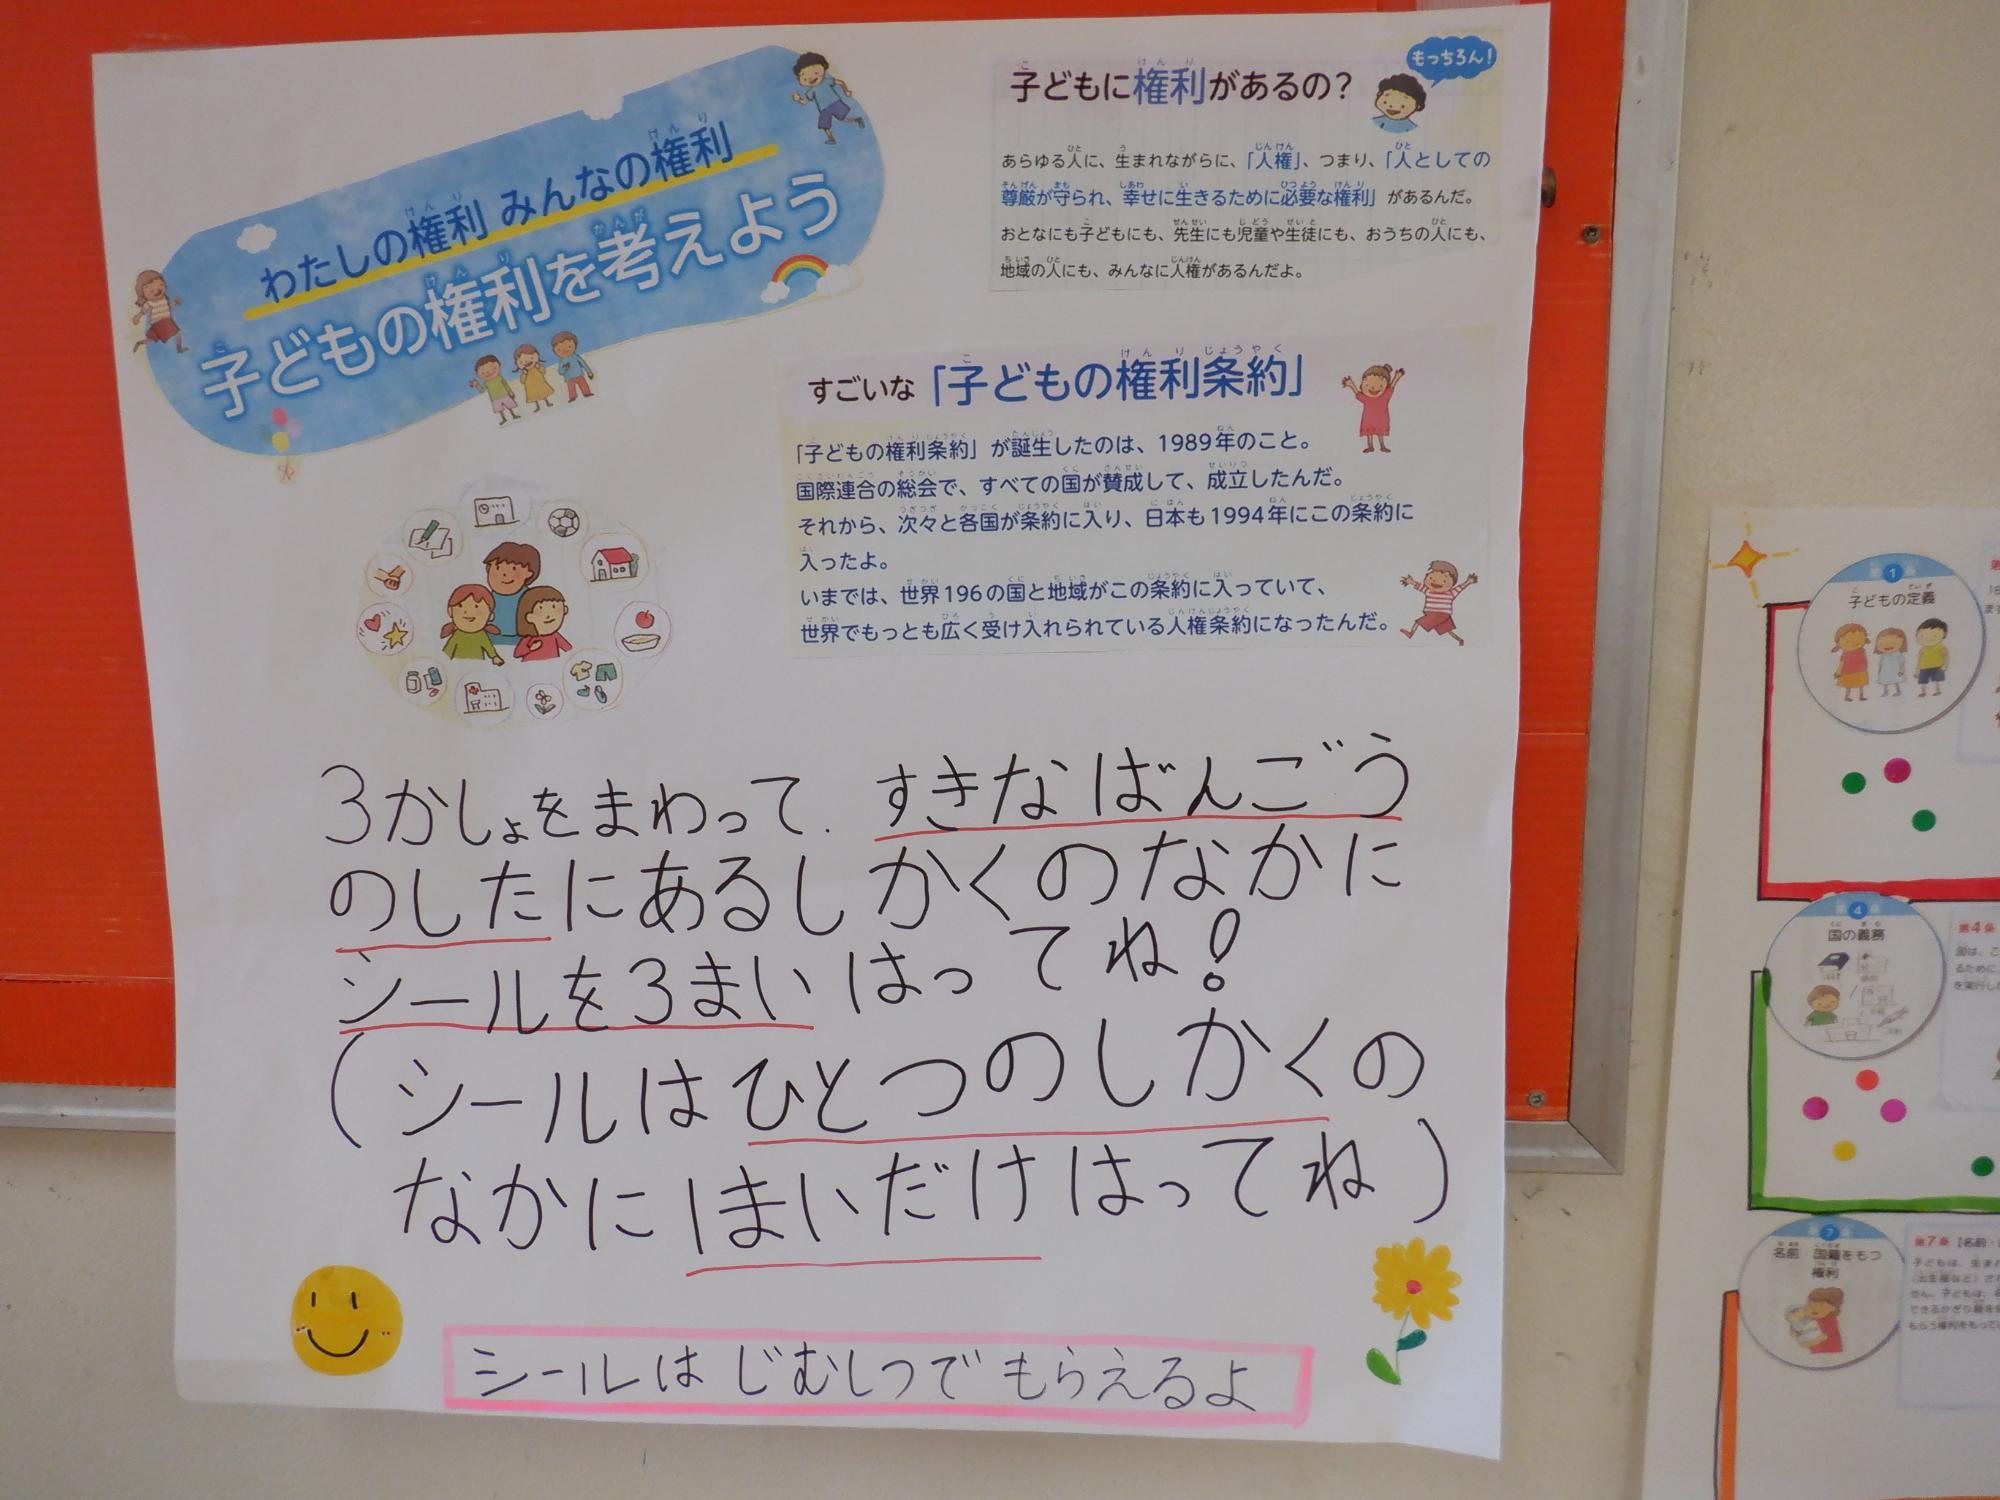 わたしの権利 みんなの権利
子どもの権利を考えよう
子どもに権利があるの？
もっちろん！
あらゆる人に、生まれながらに、「人権」、つまり、「人としての
尊厳が守られ、幸せに生きるために必要な権利」があるんだ。
おとなにも子どもにも、先生にも児童や生徒にも、おうちの人にも、
地域の人にも、みんなに人権があるんだよ。
すごいな「子どもの権利条約」
「子どもの権利条約」が誕生したのは、1989年のこと。
国際連合の総会で、すべての国が賛成して、成立したんだ。
それから、次々と各国が条約に入り、日本も1994年にこの条約に
入ったよ。
いまでは、世界196の国と地域がこの条約に入っていて、
世界でもっとも広く受け入れられている人権条約になったんだ。
3かしょをまわって、すきなばんごう
のしたにあるしかくのなかに
シールを3まいはってね!
(シールはひとつのしかくの
なかに1まいだけはってね)
シールはじむしつでもらえるよ
第1条
子どもの定義
第4条
国の義務
第4条
国は、こ
るために、
第7条
名前・国籍をもつ
権利
第7条 【名前・
子どもは、生まれ